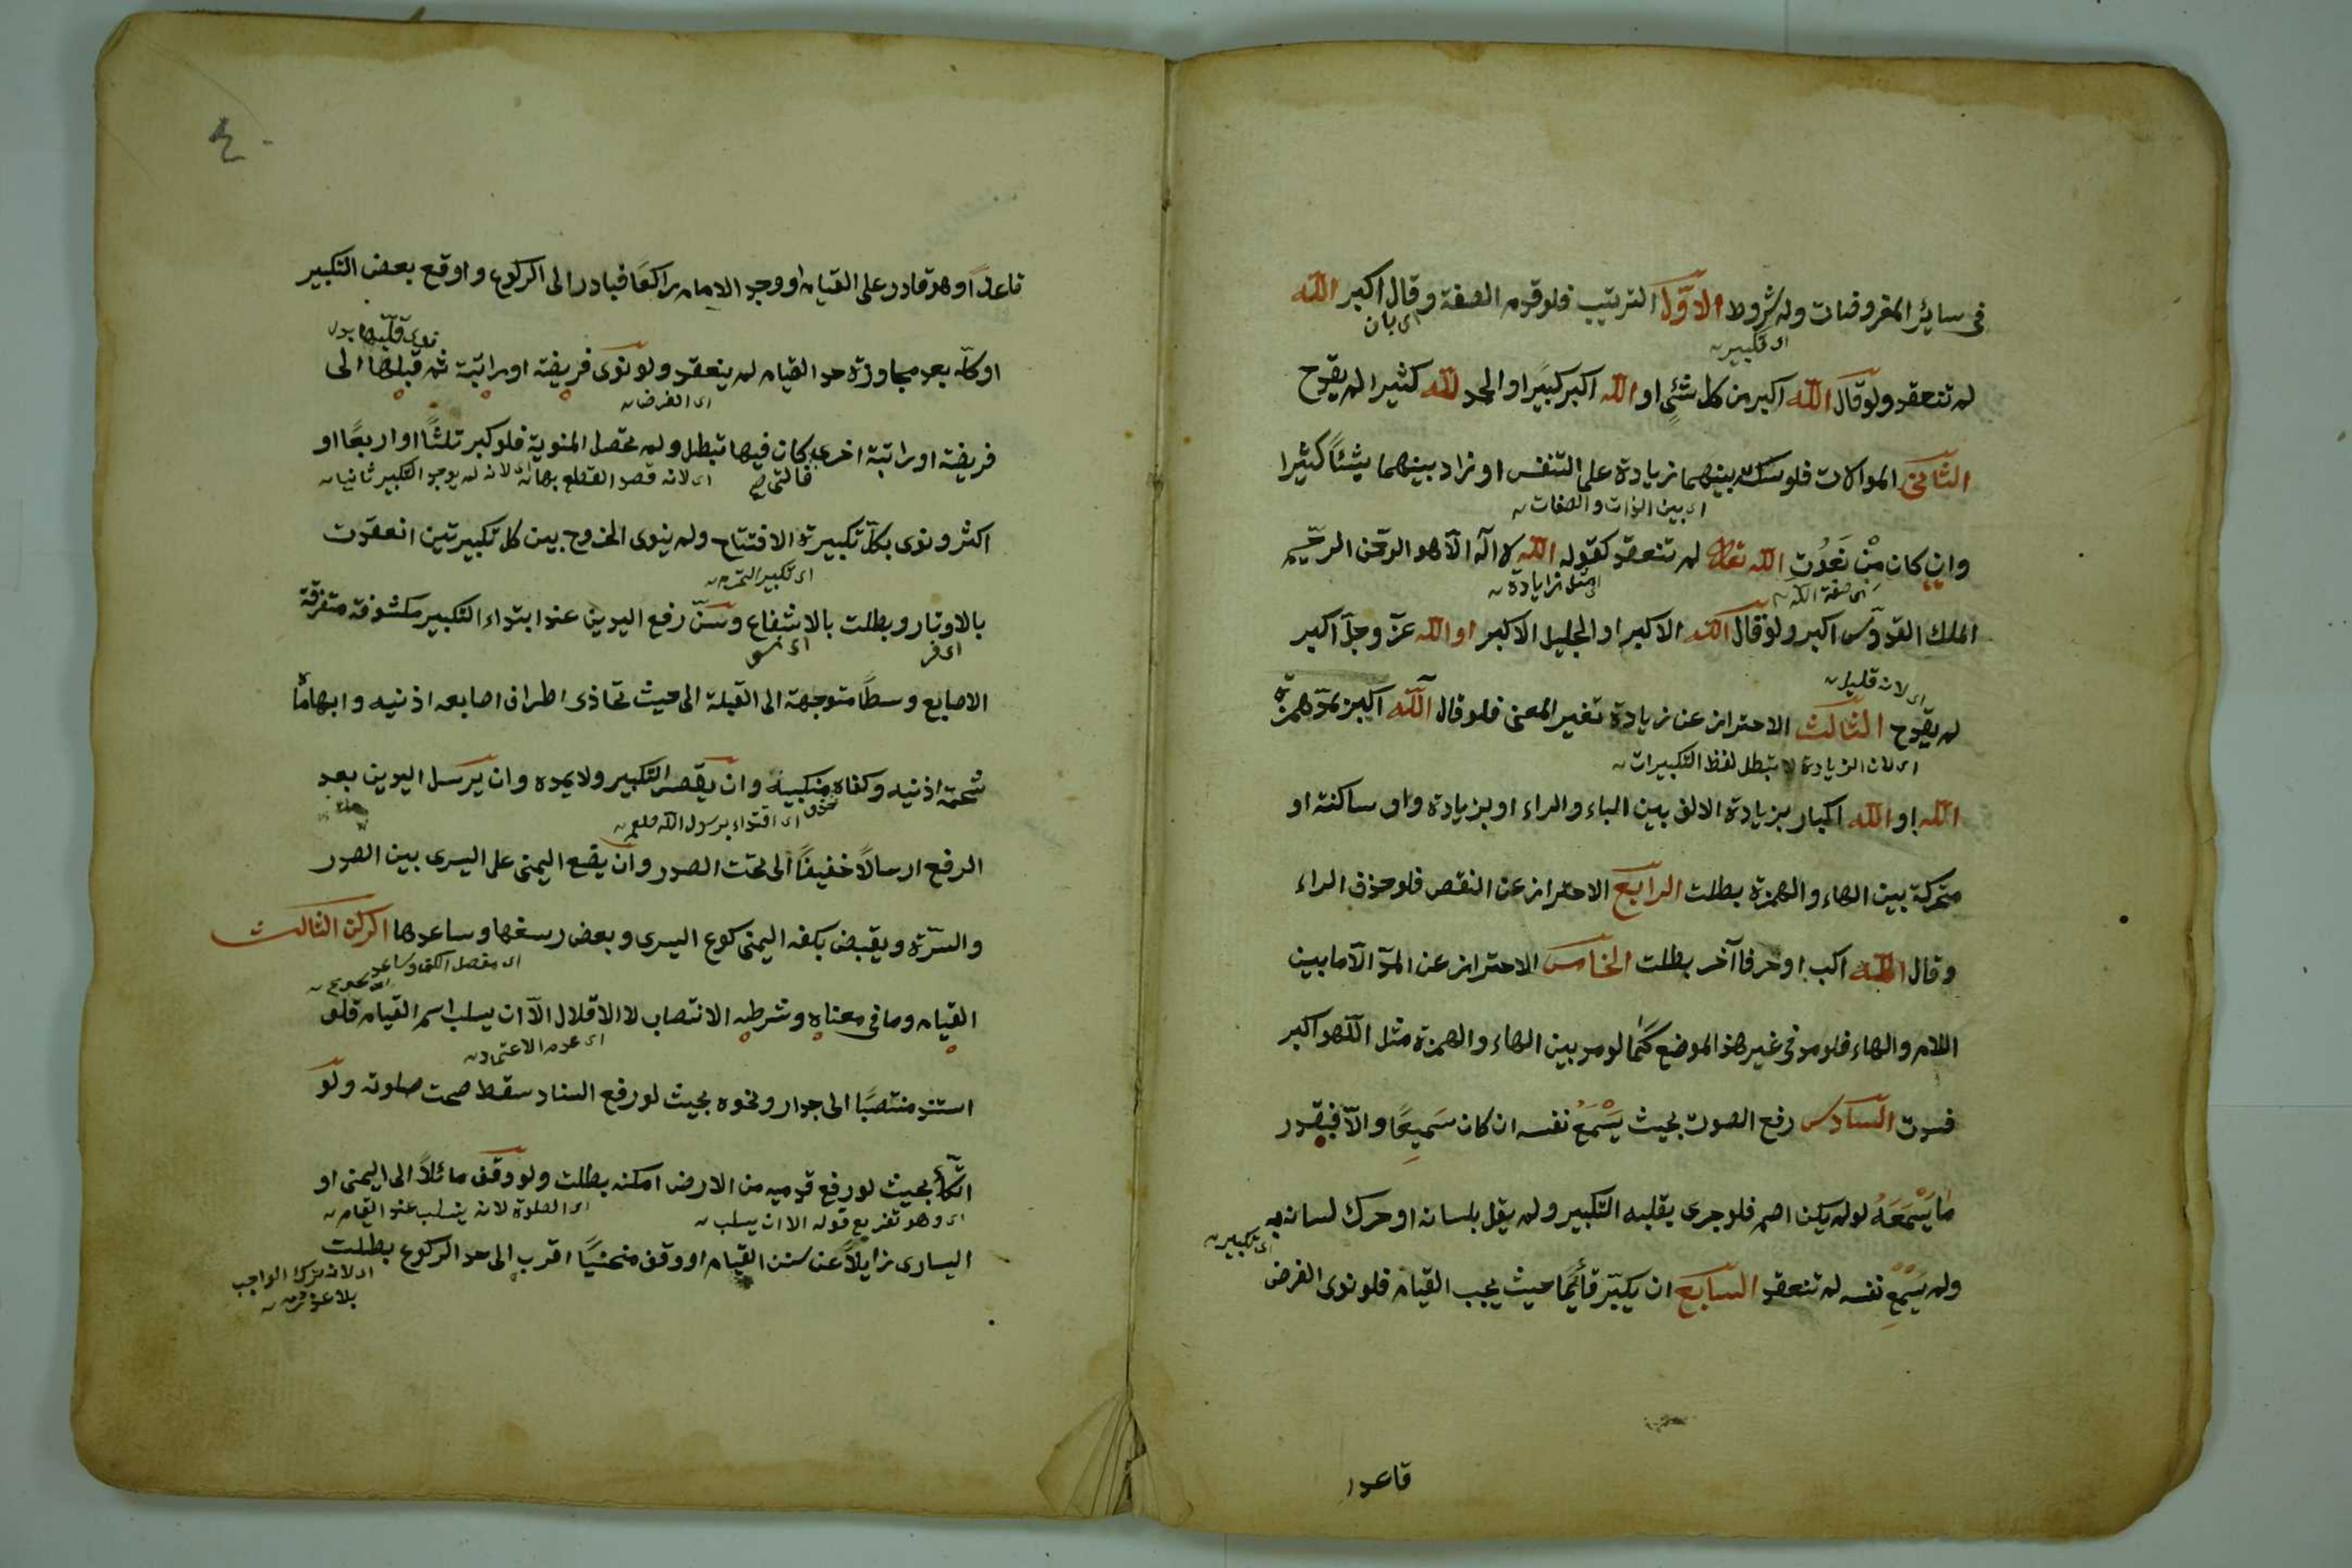 فى سائر المفروضات وله شروط الاول الترتيب فلو قدم الصفة وقال اكبر الله
اى بان
اى تكبير
لم تنعقد ولو قال الله اكبر من كل شئ او الله اكبر كبيرا او الحمد لله كثيرا لم يقدح
الثانى الموالات فلو سكت بينهما زيادة على التنفس او زاد بينهما شيئا كثيرا
اى بين الذات والصفات
وان كان من نعوت الله تعالى لم تنعقد كقوله الله لا اله الا هو الرحمن الرحيم
اى صفة الله
اى مثل زيادة
الملك القدوس اكبر ولو قال الله الاكبر او الجليل الاكبر او الله عز وجل اكبر
اى لانه قليل
لم يقدح الثالث الاحتراز عن زيادة تغير المعنى فلو قال آلله اكبر بمد همزة
اى لان الزيادة لا تبطل لفظ التكبيرات
الله او الله اكبار بزيادة الالف بين الباء والراء او بزيادة واو ساكنة او
متحركة بين الهاء والهمزة بطلت الرابع الاحتراز عن النقص فلو حذف الراء
وقال الله اكب او حرفا آخر بطلت الخامس الاحتراز عن المد الا ما بين
اللام والهاء فلو مد فى غير هذا الموضع كما لو مد بين الهاء والهمزة مثل اللهو اكبر
فسدت السادس رفع الصوت بحيث يسمع نفسه ان كان سميعا والا فبقدر
ما يسمعه لو لم يكن اصم فلو جرى بقلبه التكبير ولم يقل بلسانه او حرك لسانه به
اى تكبير
ولم يسمع نفسه لم تنعقد السابع ان يكبر قائما حيث يجب القيام فلو نوى الفرض
قاعدا
٤٠
قاعدا وهو قادر على القيام او وجد الامام راكعا فبادر الى الركوع واوقع بعض التكبير
او كله بعد مجاوزة حد القيام لم ينعقد ولو نوى فريضة او راتبة ثم قبلها الى
اى الفرض
فريضة او راتبة اخرى كان فيها تبطل ولم تحصل المنوية فلو كبر ثلثا او اربعا او
اى لانه قصد القطع بها
اى لانه لم يوجد التكبير ثانيا
اكثر ونوى بكل تكبيرة الافتتاح ولم ينوى الخروج بين كل تكبيرتين انعقدت
اى تكبير التحرم
بالاوتار وبطلت بالاشفاع وسن رفع اليدين عند ابتداء التكبير مكشوفة متفرقة
اى فر
الاصابع وسطا متوجهة الى القبلة الى حيث تحاذى اطراف اصابعه اذنيه وابهاماه
شحمة اذنيه وكفاه منكبيه وان يقصر التكبير ولا يمده وان يرسل اليدين بعد
اى اقتداء برسول الله صلعم
الرفع ارسالا خفيفا الى تحت الصدر وان يضع اليمنى على اليسرى بين الصدر
والسرة ويقبض بكفه اليمنى كوع اليسرى وبعض رسغها وساعدها الركن الثالث
اى مفصل الكف وساعد
القيام وما فى معناه وشرطه الانتصاب لا الاقلال الا ان يسلب اسم القيام فلو
اى عدم الاعتماد
استند منتصبا الى جدار ونحوه بحيث لو رفع السناد سقط صحت صلوته ولو
اتكأ بحيث لو رفع قدميه من الارض امكنه بطلت ولو وقف مائلا الى اليمنى او
اى وهو تفريع قوله الا ان يسلب
اى الصلوة لانه يسلب عند القيام
اليسارى زايلا عن سنن القيام او وقف منحنيا اقرب الى حد الركوع بطلت
اى لانه ترك الواجب
بلا عذر